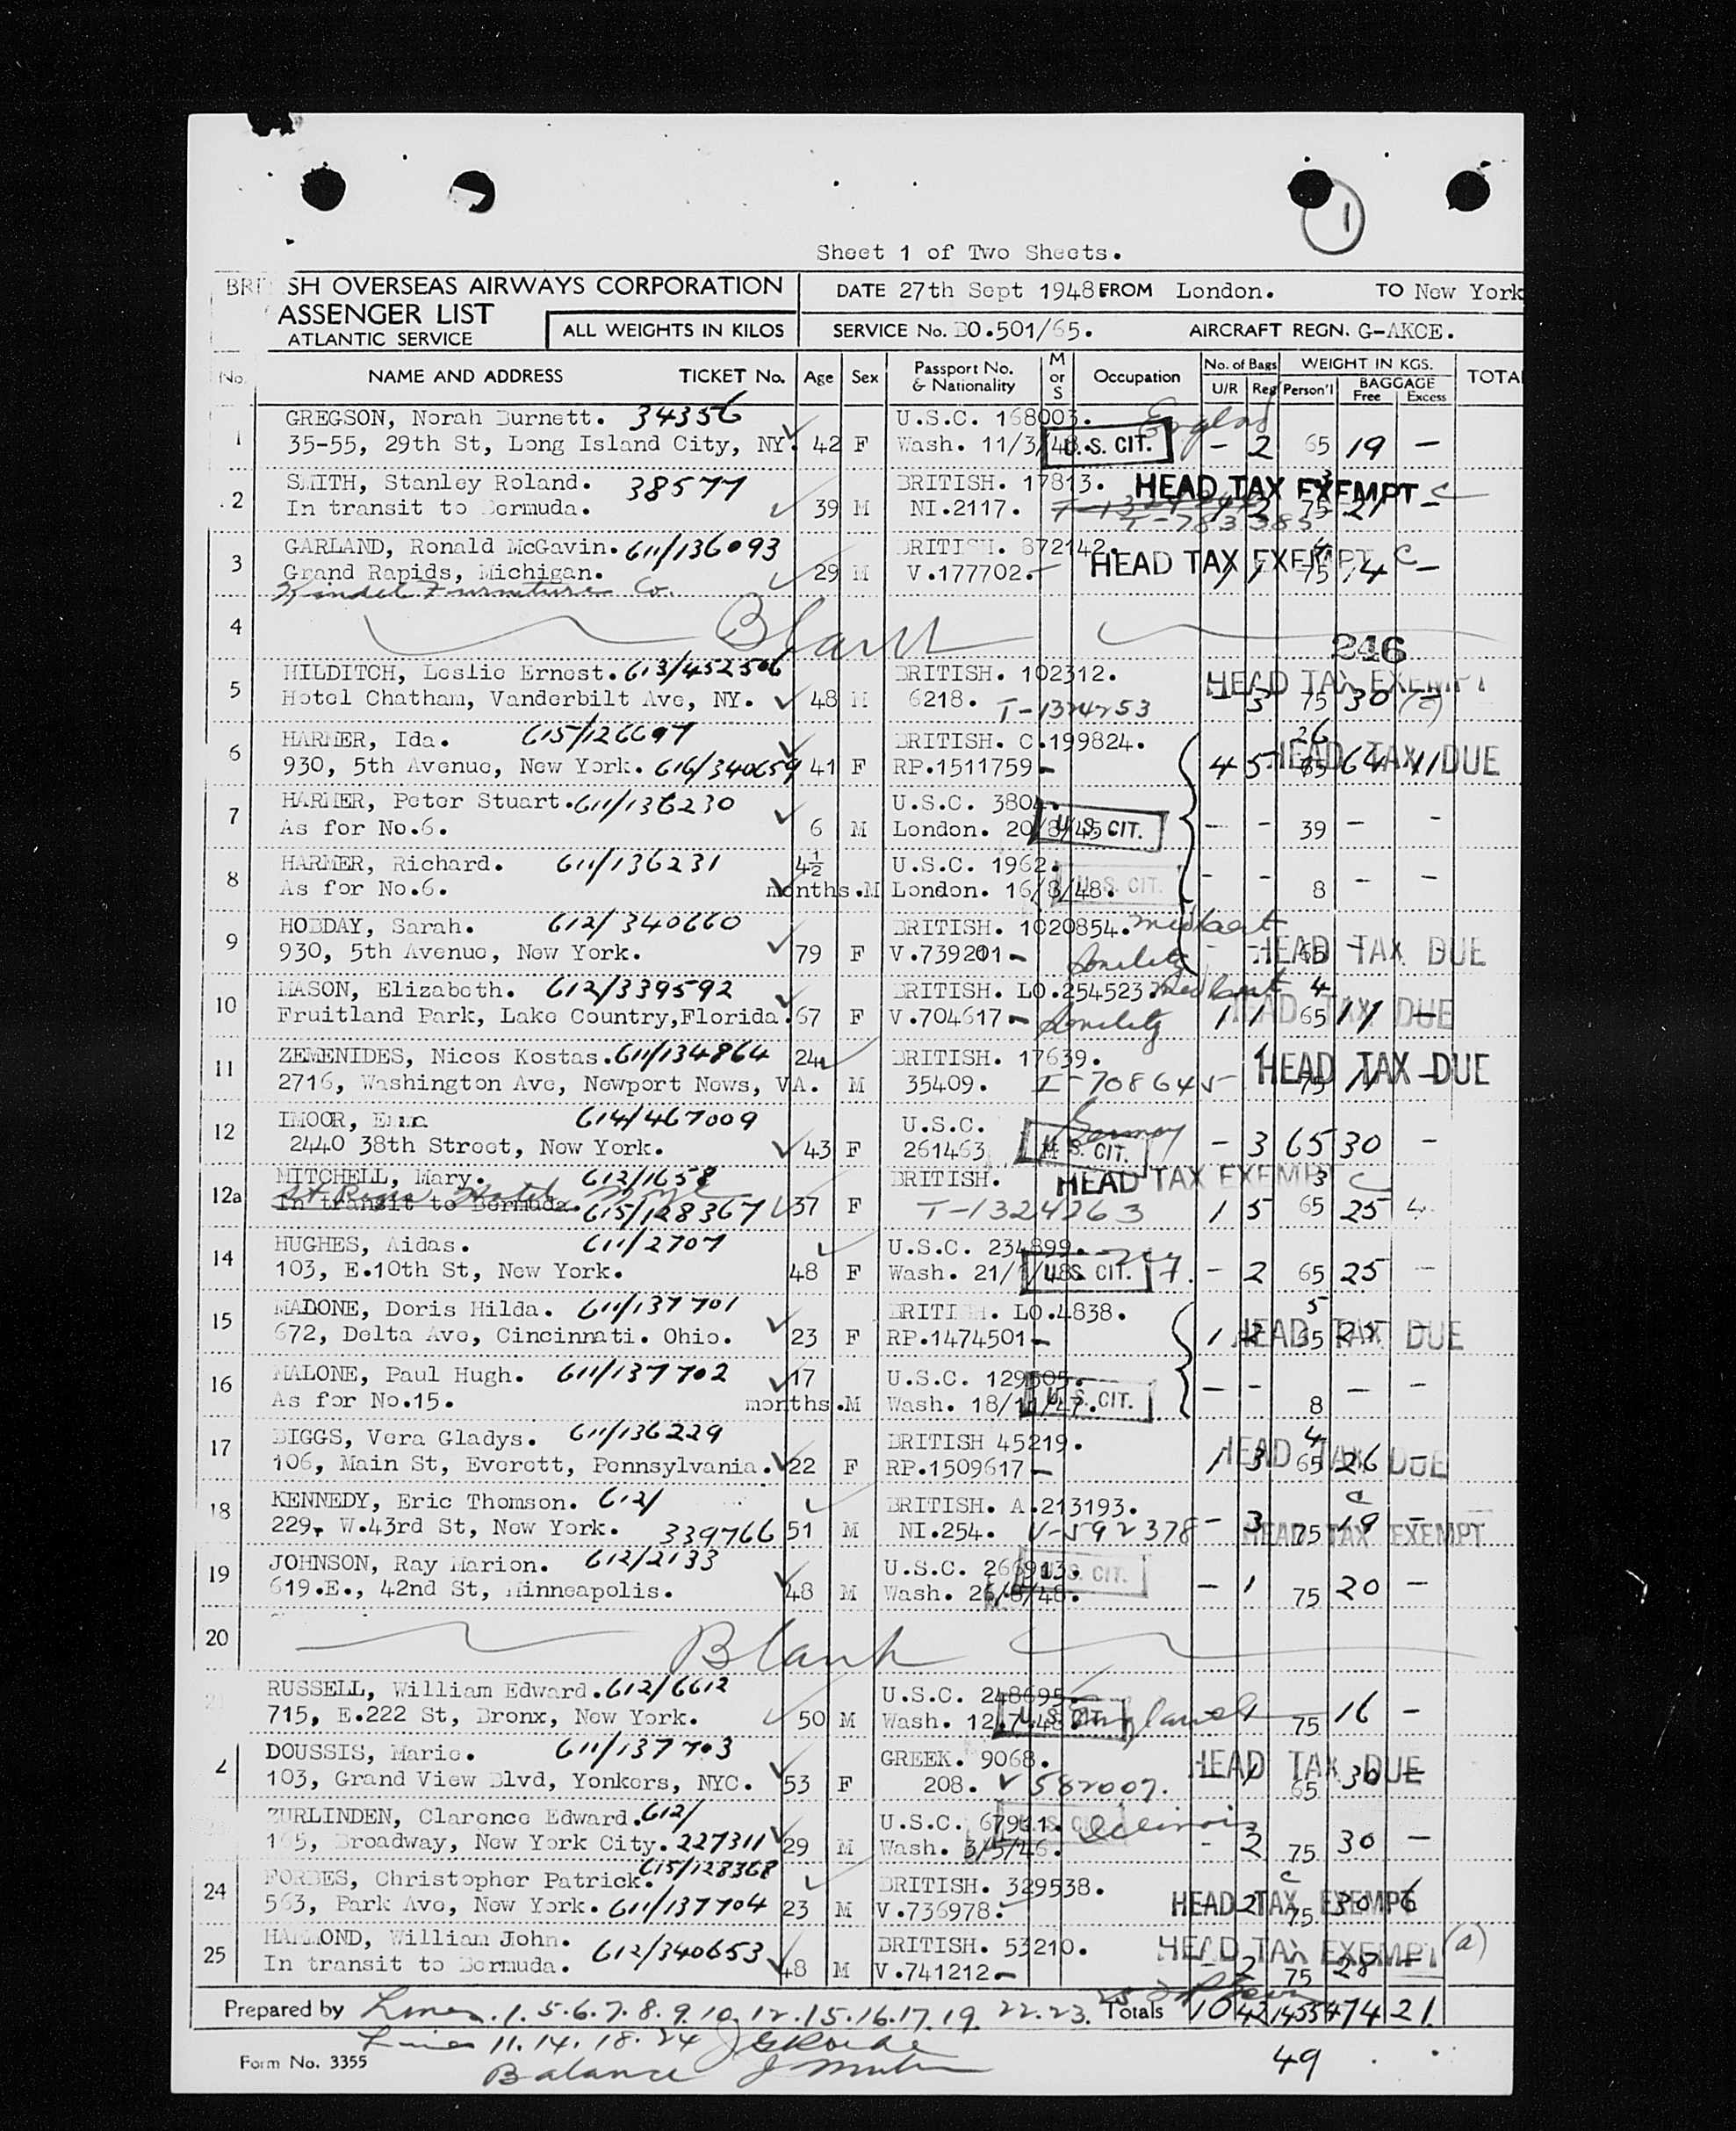 1
Sheet 1 of Two Sheets.
SH OVERSEAS AIRWAYS CORPORATION
ASSENGER LIST
ATLANTIC SERVICE
ALL WEIGHTS IN KILOS
DATE 27th Sept 1948 FROM London. TO New York
SERVICE No. BO.501/65. AIRCRAFT REGN. G-AKCE.
No. NAME AND ADDRESS TICKET No. Age Sex Passport No. & Nationality M or S Occupation No. of Bags U/R Reg WEIGHT IN KGS. Person'l BAGGAGE Free Excess TOTA
GREGSON, Norah Burnett. 34356 U.S.C. 168003.
1 35-55, 29th St, Long Island City, NY. 42 F Wash. 11/3/48. U.S. CIT. - 2 65 19 -
SMITH, Stanley Roland. 38577 BRITISH. 17813. HEAD TAX EXEMPT C
2 In transit to Bermuda. 39 M NI.2117. T-783385 75 21 -
GARLAND, Ronald McGavin. 611/136093 BRITISH. 872142.
3 Grand Rapids, Michigan. 29 M V.177702. HEAD TAX EXEMPT C 1 1 75 14 -
Kindel Furniture Co.
4 Blank 246
HILDITCH, Leslie Ernest. 613/452506 BRITISH. 102312. HEAD TAX EXEMPT
5 Hotel Chatham, Vanderbilt Ave, NY. 48 M 6218. T-1324253 - 3 75 30 (c)
HARMER, Ida. 615/126697 BRITISH. C.199824. 26
6 930, 5th Avenue, New York. 616/340659 41 F RP.1511759 4 5 65 64 11 HEAD TAX DUE
HARMER, Peter Stuart. 611/136230 U.S.C. 380
7 As for No.6. 6 M London. 20/8/45 U.S. CIT. - - 39 - -
HARMER, Richard. 611/136231 4½ U.S.C. 1962.
8 As for No.6. months. M London. 16/8/48. U.S. CIT. - - 8 - -
HOBDAY, Sarah. 612/340660 BRITISH. 1020854.
9 930, 5th Avenue, New York. 79 F V.739201 - - 65 - HEAD TAX DUE
MASON, Elizabeth. 612/339592 BRITISH. LO.254523. 4
10 Fruitland Park, Lake Country, Florida. 67 F V.704617 1 1 65 11 - HEAD TAX DUE
ZEMENIDES, Nicos Kostas. 611/134864 24 BRITISH. 17639.
11 2716, Washington Ave, Newport News, VA. M 35409. I-708645 75 HEAD TAX DUE
IMOOR, Emma 614/467009 U.S.C. Germany
12 2440 38th Street, New York. 43 F 261463 U.S. CIT. - 3 65 30 -
MITCHELL, Mary. 612/1658 BRITISH. HEAD TAX EXEMPT 3 C
12a In transit to Bermuda. 615/128367 37 F T-1324263 1 5 65 25 4
HUGHES, Aidas. 611/2707 U.S.C. 234899.
14 103, E.10th St, New York. 48 F Wash. 21/ /48. U.S. CIT. - 2 65 25 -
MALONE, Doris Hilda. 611/137701 BRITISH. LO.4838. 5
15 672, Delta Ave, Cincinnati. Ohio. 23 F RP.1474501 1 2 65 25 - HEAD TAX DUE
MALONE, Paul Hugh. 611/137702 17 U.S.C. 129505.
16 As for No.15. months. M Wash. 18/11/47. U.S. CIT. - - 8 - -
BIGGS, Vera Gladys. 611/136229 BRITISH 45219. 4
17 106, Main St, Everett, Pennsylvania. 22 F RP.1509617 1 3 65 26 - HEAD TAX DUE
KENNEDY, Eric Thomson. 612/ BRITISH. A.213193. C
18 229, W.43rd St, New York. 339766 51 M NI.254. V-592378 - 3 75 19 - HEAD TAX EXEMPT
JOHNSON, Ray Marion. 612/2133 U.S.C. 266913.
19 619.E., 42nd St, Minneapolis. 48 M Wash. 26/8/48. U.S. CIT. - 1 75 20 -
20 Blank
RUSSELL, William Edward. 612/6612 U.S.C. 248695.
715, E.222 St, Bronx, New York. 50 M Wash. 12.7.48. U.S. CIT. England 1 75 16 -
DOUSSIS, Marie. 611/137703 GREEK. 9068. HEAD TAX DUE
2 103, Grand View Blvd, Yonkers, NYC. 53 F 208. V 582007. - 1 65 30 -
ZURLINDEN, Clarence Edward. 612/ U.S.C. 67911. Illinois
165, Broadway, New York City. 227311 29 M Wash. 3/5/46. U.S. CIT. - 2 75 30 -
FORBES, Christopher Patrick. 615/128368 BRITISH. 329538. C
24 563, Park Ave, New York. 611/137704 23 M V.736978. 2 75 30 6 HEAD TAX EXEMPT
HAMMOND, William John. 612/340653 BRITISH. 53210. HEAD TAX EXEMPT (a)
25 In transit to Bermuda. 48 M V.741212 - 2 75 28 -
Prepared by Lines. 1. 5. 6. 7. 8. 9. 10. 12. 15. 16. 17. 19. 22. 23. Totals 10 42 1455 474 21.
Lines 11. 14. 18. 24
Form No. 3355 Balance 49